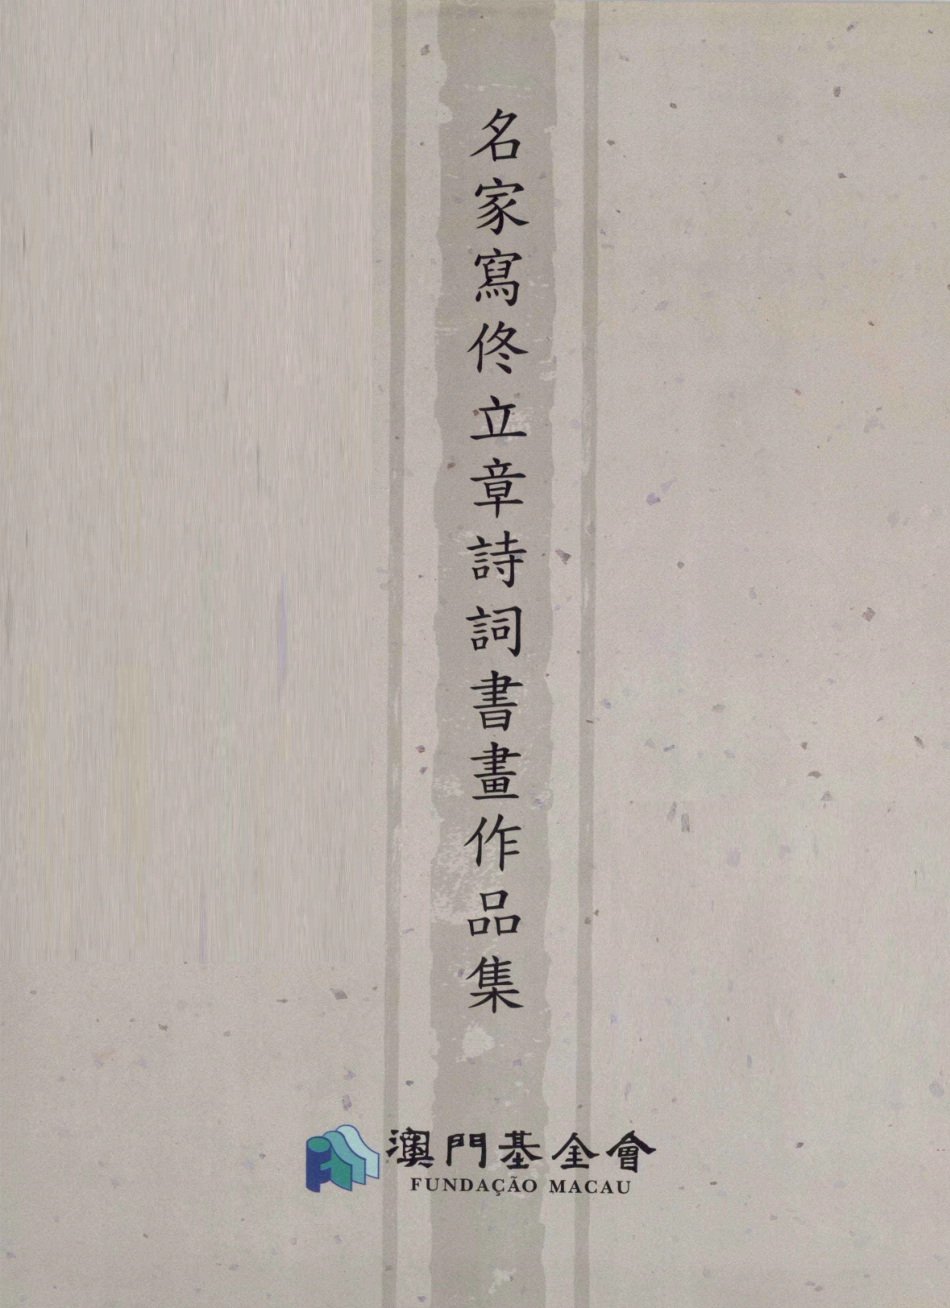 名家寫佟立章詩詞書畫作品集
澳門基金會
FUNDAÇÃO MACAU